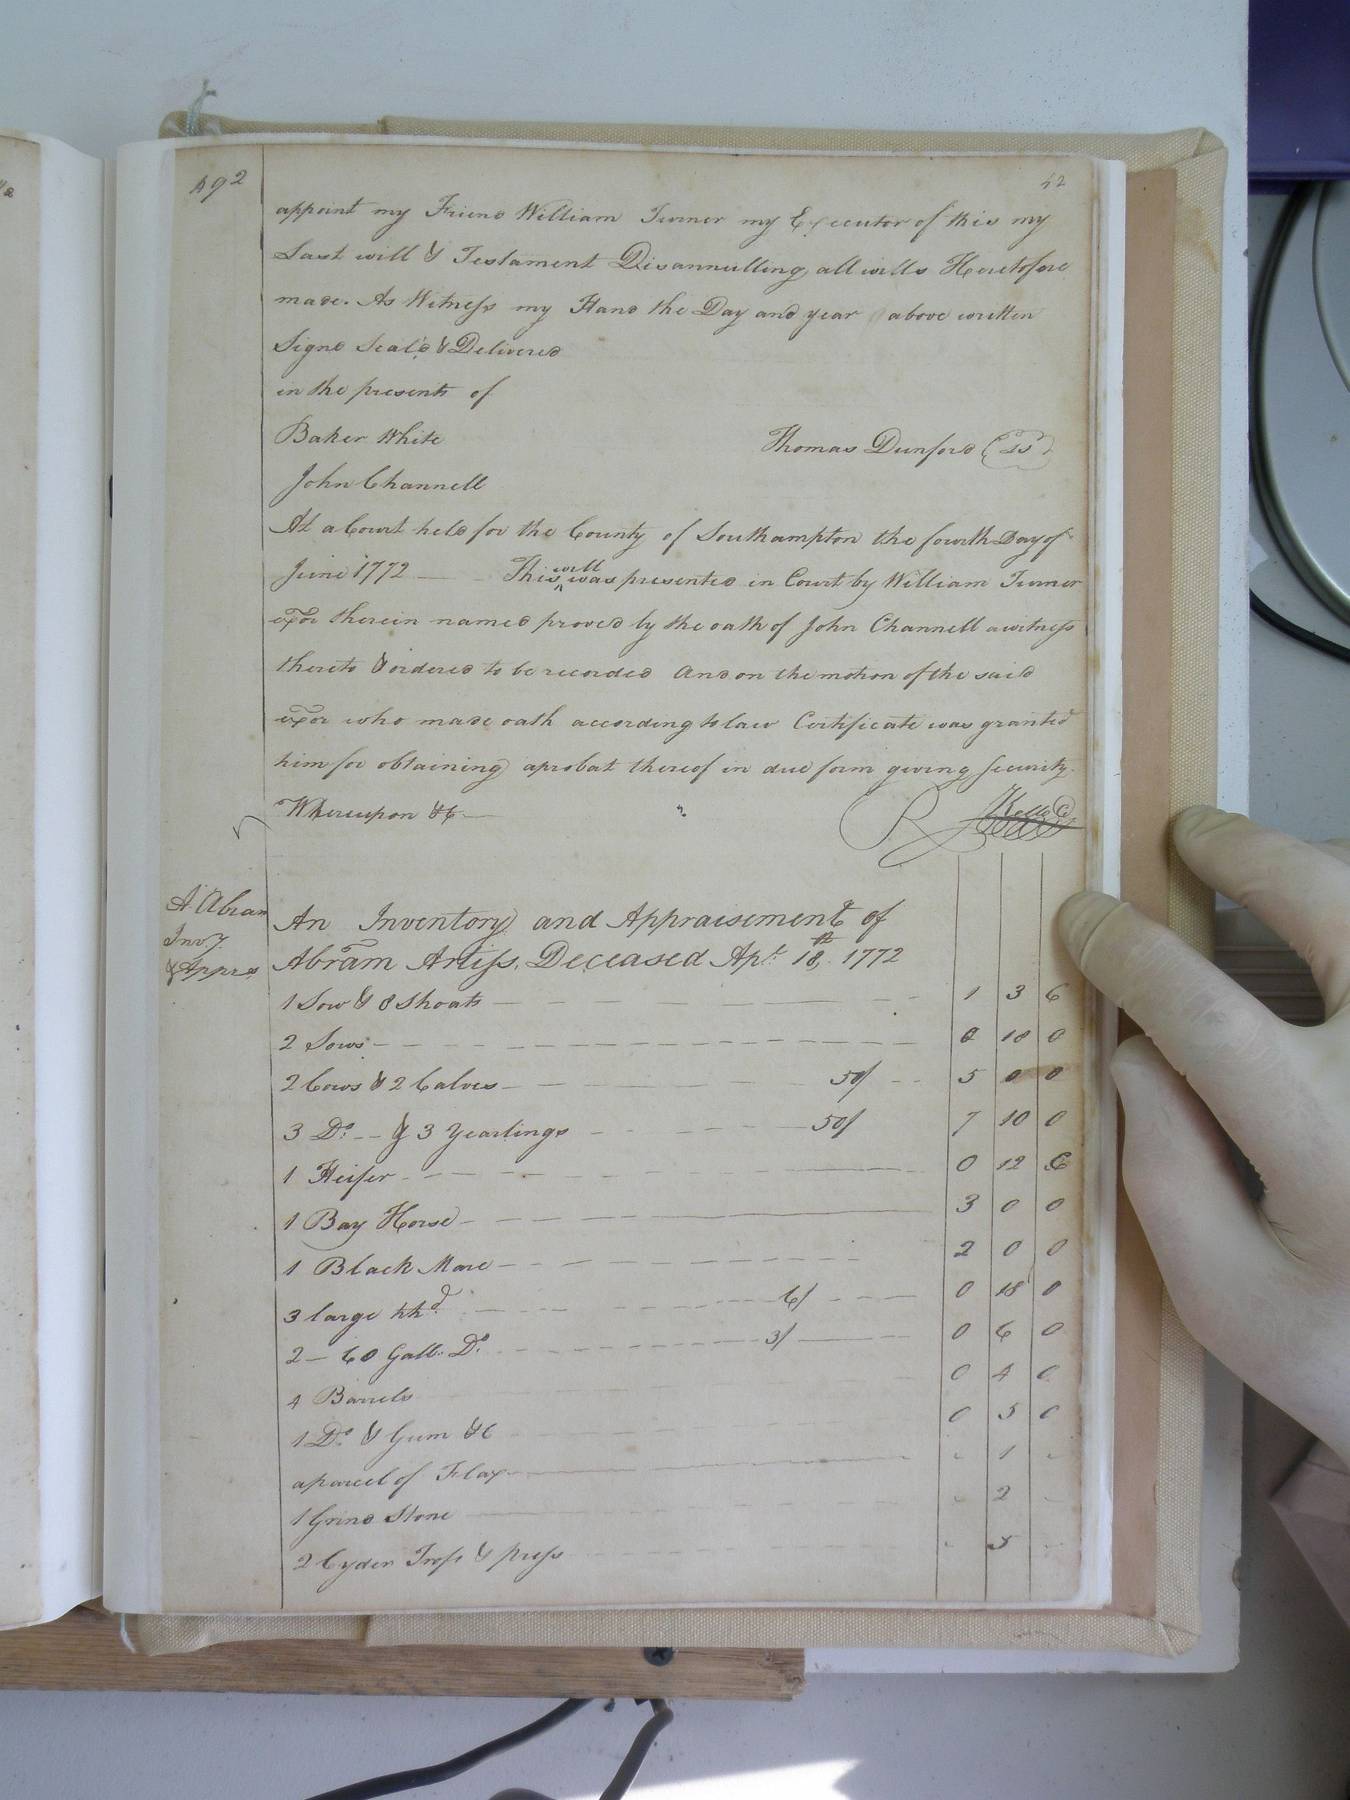 492
42
appoint my Friend William Turner my Executor of this my
Last will & Testament Disannulling all wills Heretofore
made. As Witness my Hand the Day and year above written
Signd Seal'd & Delivered
in the presents of
Baker White
Thomas Dunford (LS)
John Channell
At a Court held for the County of Southampton the fourth Day of
June 1772 — This will was presented in Court by William Turner
exor therein named proved by the oath of John Channell a witness
thereto & ordered to be recorded And on the motion of the said
exor who made oath according to law Certificate was granted
him for obtaining a probat thereof in due form giving security
Whereupon &c —
A. Abram
Invy.
& Appra
An Inventory and Appraisement of
Abram Artiss, Deceased Apl. 18th. 1772
1 Sow & 8 Shoats 1 3 6
2 Sows 0 18 0
2 Cows & 2 Calves 50/ 5 0 0
3 Do. & 3 Yearlings 50/ 7 10 0
1 Heifer 0 12 6
1 Bay Horse 3 0 0
1 Black Mare 2 0 0
3 large hhd 6/ 0 18 0
2 — 60 Gall. Do. 3/ 0 6 0
4 Barrels 0 4 0
1 Do. & Gum &c 0 5 0
a parcel of Flax - 1 -
1 Grind Stone - 2 -
2 Cyder & press - 5 -